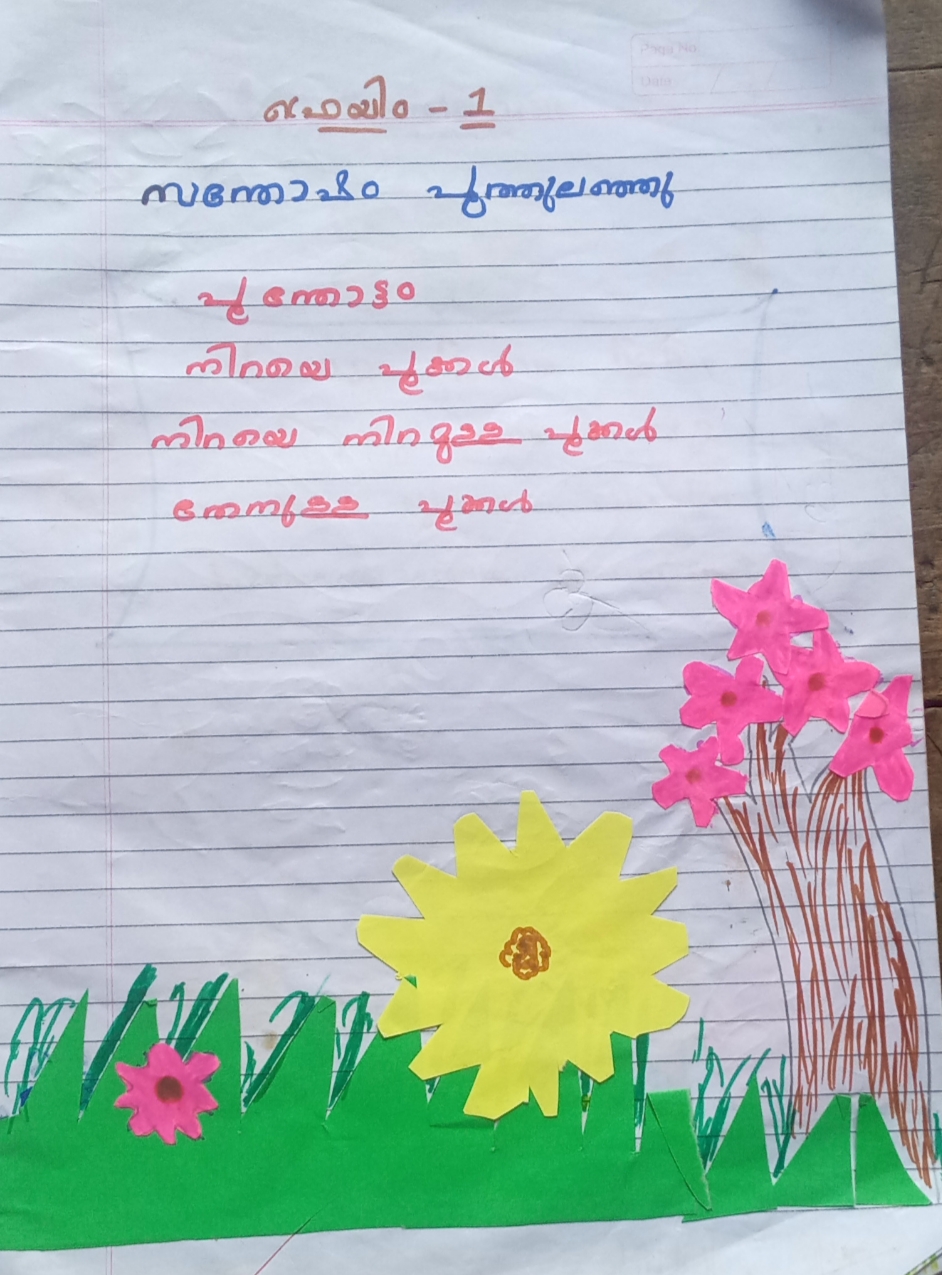 Page No.
Date
ഫ്രെയിം - 1
സന്തോഷം പൂത്തുലഞ്ഞു
പൂന്തോട്ടം
നിറയെ പൂക്കൾ
നിറയെ നിറമുള്ള പൂക്കൾ
തേനുള്ള പൂക്കൾ